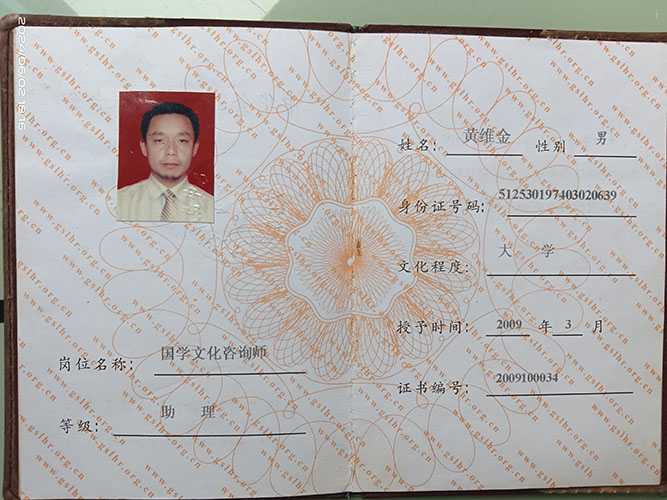 2024/06/02 16:16
www.gslhr.org.cn
岗位名称: 国学文化咨询师
等级: 助 理
姓名: 黄维金 性别 男
身份证号码: 512530197403020639
文化程度: 大 学
授予时间: 2009 年 3 月
证书编号: 2009100034